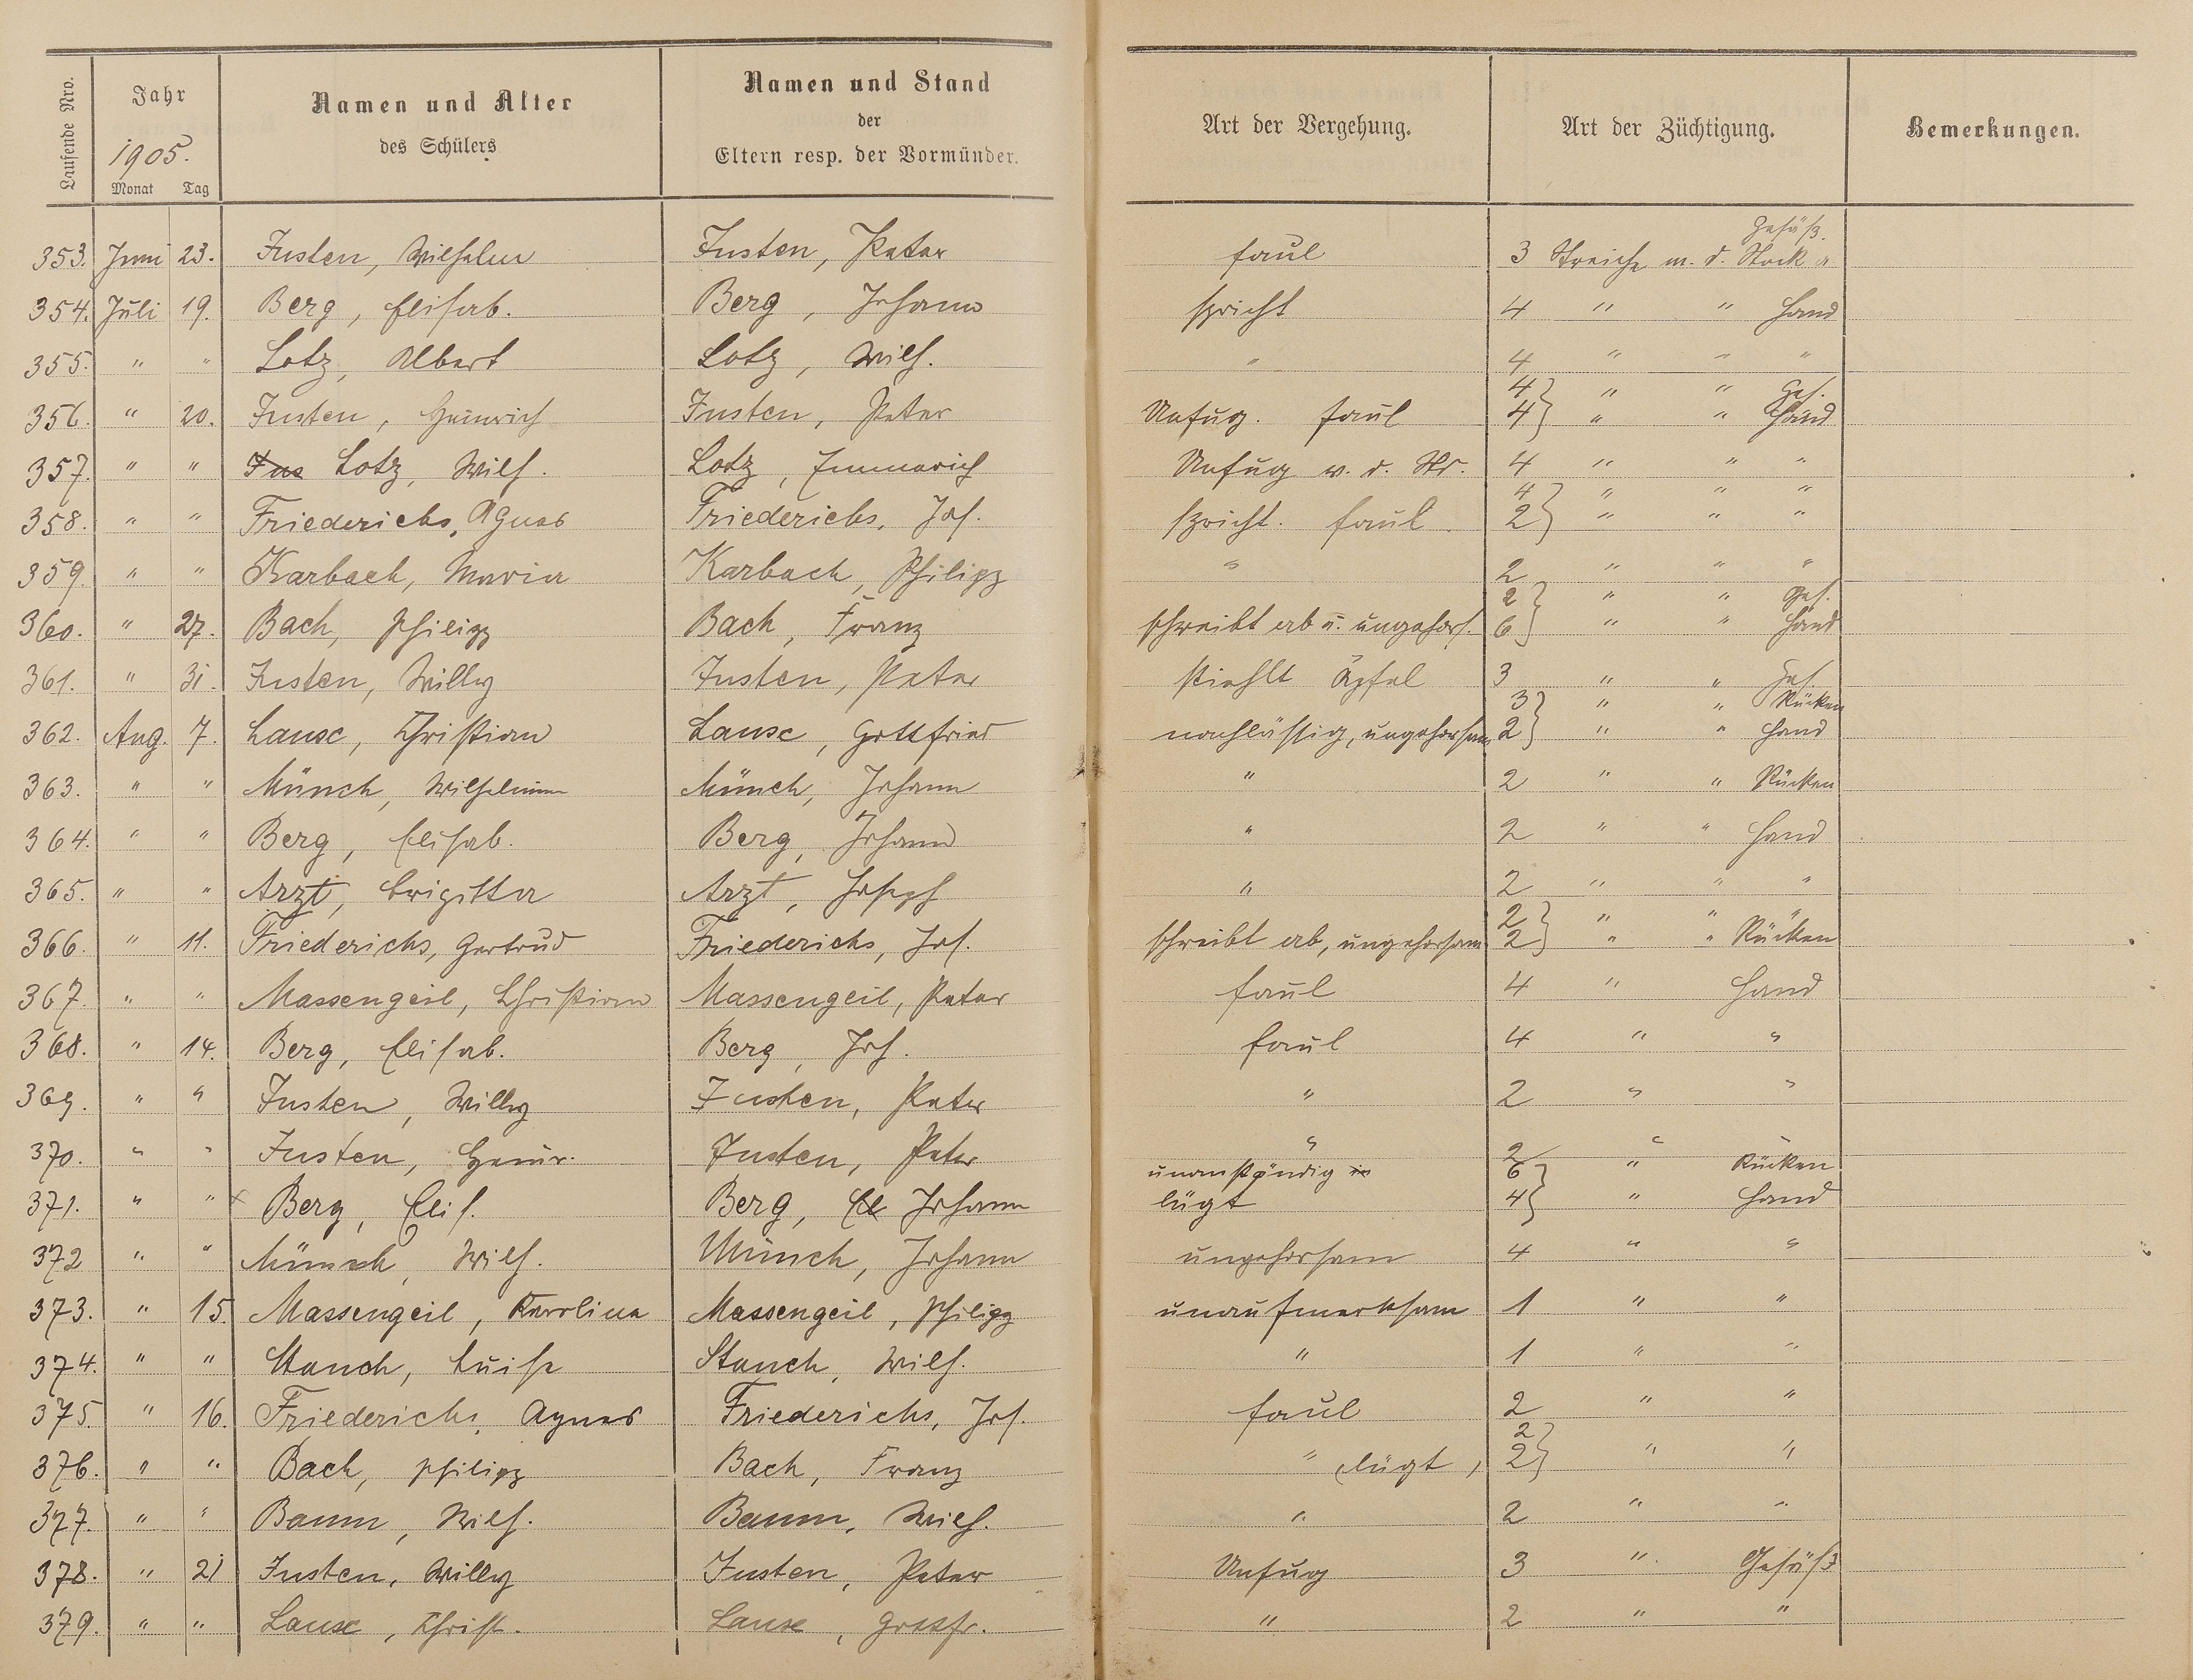 Laufende Nro.
Jahr
1905.
Monat Tag
Namen und Alter
des Schülers
Namen und Stand
der
Eltern resp. der Vormünder.
Art der Vergehung.
Art der Züchtigung.
Bemerkungen.
353. Juni 23. Justen, Wilhelm Justen, Peter faul 3 Streiche m. d. Stock a. Gesäß.
354. Juli 19. Berg, Elisab. Berg, Johann spricht 4 " " Hand
355. " " Lotz, Albert Lotz, Wilh. " 4 " " "
4 } " " Ges.
356. " 20. Justen, Heinrich Justen, Peter Unfug. faul 4 } " " Hand
357. " " Jus Lotz, Wilh. Lotz, Emmerich Unfug v. d. Str. 4 " " "
4 } " " "
358. " " Friederichs, Agnes Friederichs, Jos. spricht. faul 2 } " " "
359. " " Karbach, Maria Karbach, Philipp " 2 " " "
2 } " " Ges.
360. " 27. Bach, Philipp Bach, Franz schreibt ab u. ungehors. 6 } " " Hand
361. " 31. Justen, Willy Justen, Peter stiehlt Äpfel 3 " " Ges.
3 } " " Rücken
362. Aug. 7. Lause, Christian Lause, Gottfried nachlässig, ungehorsam 2 } " " Hand
363. " " Münch, Wilhelmine Münch, Johann " 2 " " Rücken
364. " " Berg, Elisab. Berg, Johann " 2 " " Hand
365. " " Arzt, Brigitta Arzt, Joseph " 2 " " "
2 } " " "
366. " 11. Friederichs, Gertrud Friederichs, Jos. schreibt ab, ungehorsam 2 } " " Rücken
367. " " Massengeil, Christian Massengeil, Peter faul 4 " Hand
368. " 14. Berg, Elisab. Berg, Joh. faul 4 " "
369. " " Justen, Willy Justen, Peter " 2 " "
370. " " Justen, Heinr. Justen, Peter " 2 " "
unanständig in 6 } " Rücken
371. " " x Berg, Elis. Berg, El Johann lügt 4 } " Hand
372 " " Münch, Wilh. Münch, Johann ungehorsam 4 " "
373. " 15. Massengeil, Karolina Massengeil, Philipp unaufmerksam 1 " "
374. " " Stauch, Luise Stauch, Wilh. " 1 " "
375. " 16. Friederichs, Agnes Friederichs, Jos. faul 2 " "
2 }
376. " " Bach, Philipp Bach, Franz " lügt, 2 } " "
377. " " Baum, Wilh. Baum, Wilh. " 2 " "
378. " 21 Justen, Willy Justen, Peter Unfug 3 " Gesäß
379. " " Lause, Christ. Lause, Gottfr. " 2 " "